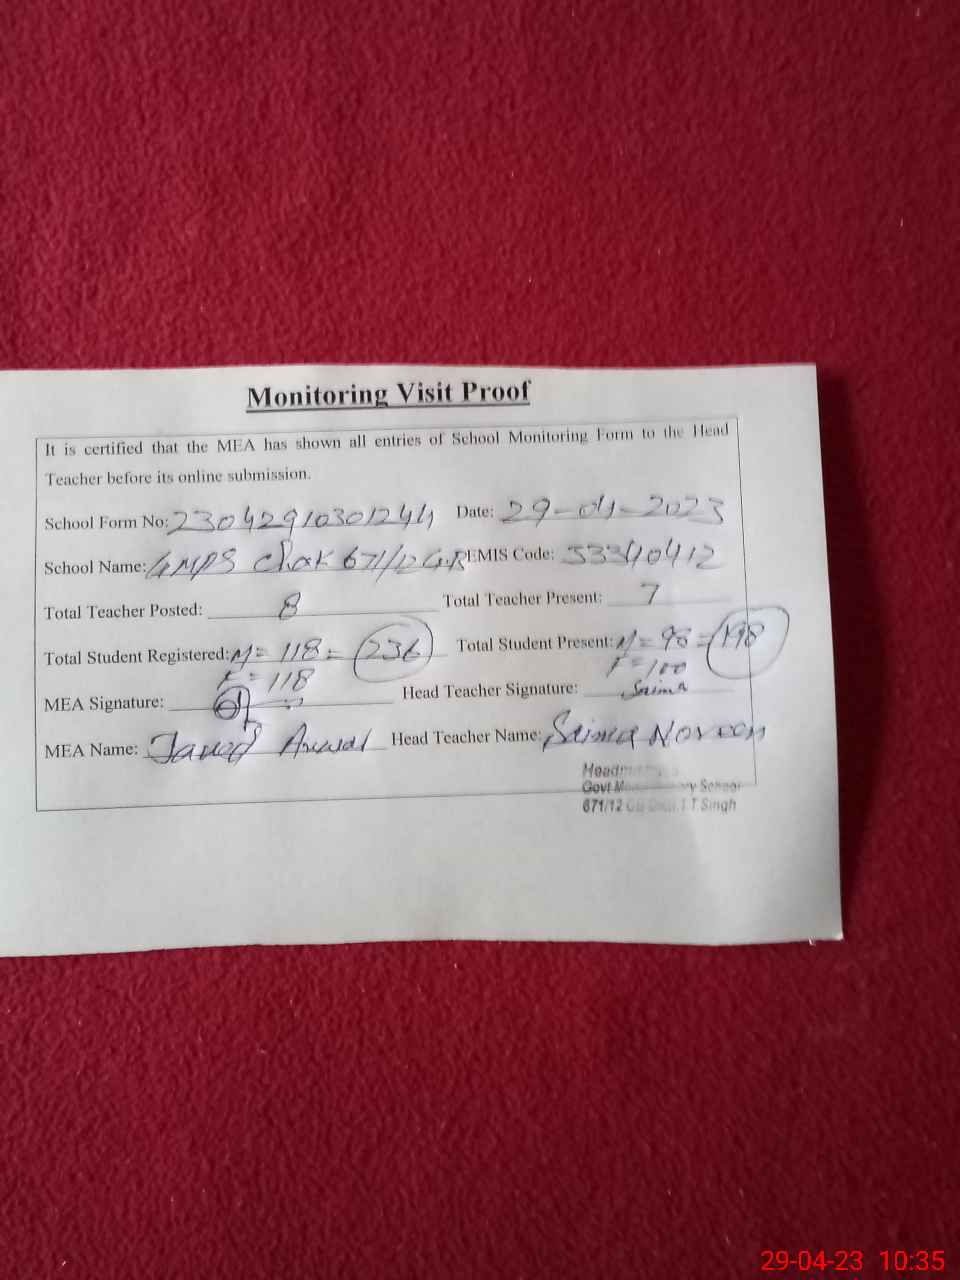 Monitoring Visit Proof
It is certified that the MEA has shown all entries of School Monitoring Form to the Head
Teacher before its online submission.
School Form No: 23042910301244 Date: 29-04-2023
School Name: GMPS Chak 671/12 G.R EMIS Code: 33340412
Total Teacher Posted: 8 Total Teacher Present: 7
Total Student Registered: M = 118 = 236 Total Student Present: M = 98 = 198
F = 118 F = 100
MEA Signature: Head Teacher Signature: Saima
MEA Name: Javed Head Teacher Name: Saima Noreen
Govt School
671/12 T.T.Singh
29-04-23 10:35